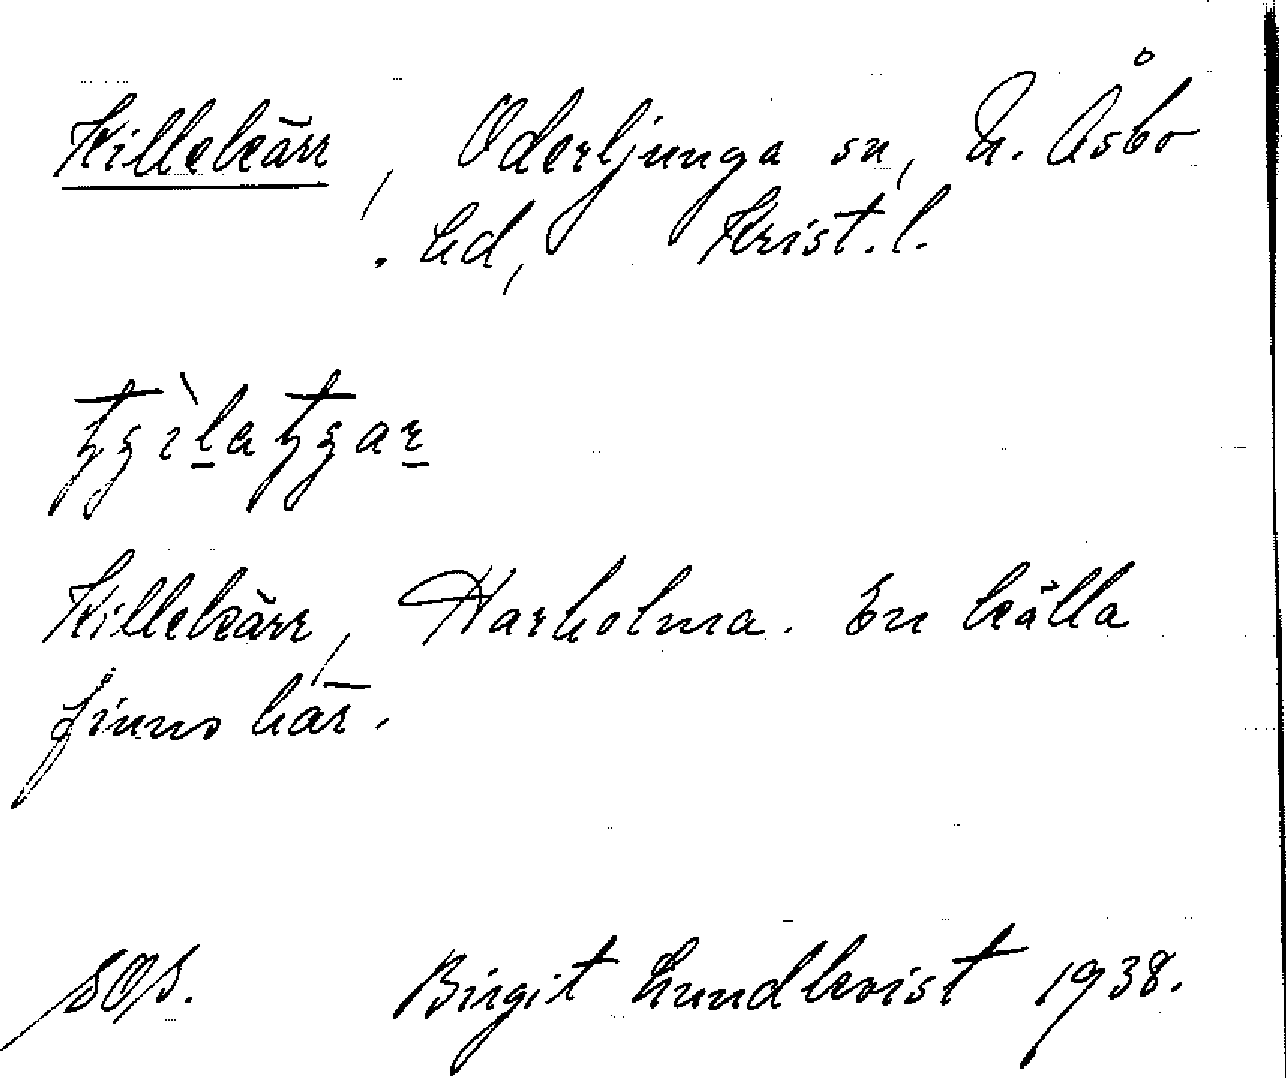 Killekärr, Oderljunga sn, N. Åsbo
hd, Krist. l.
Killekärr, Harholma. En källa
finns här.
SOA. Birgit Lundkvist 1938.